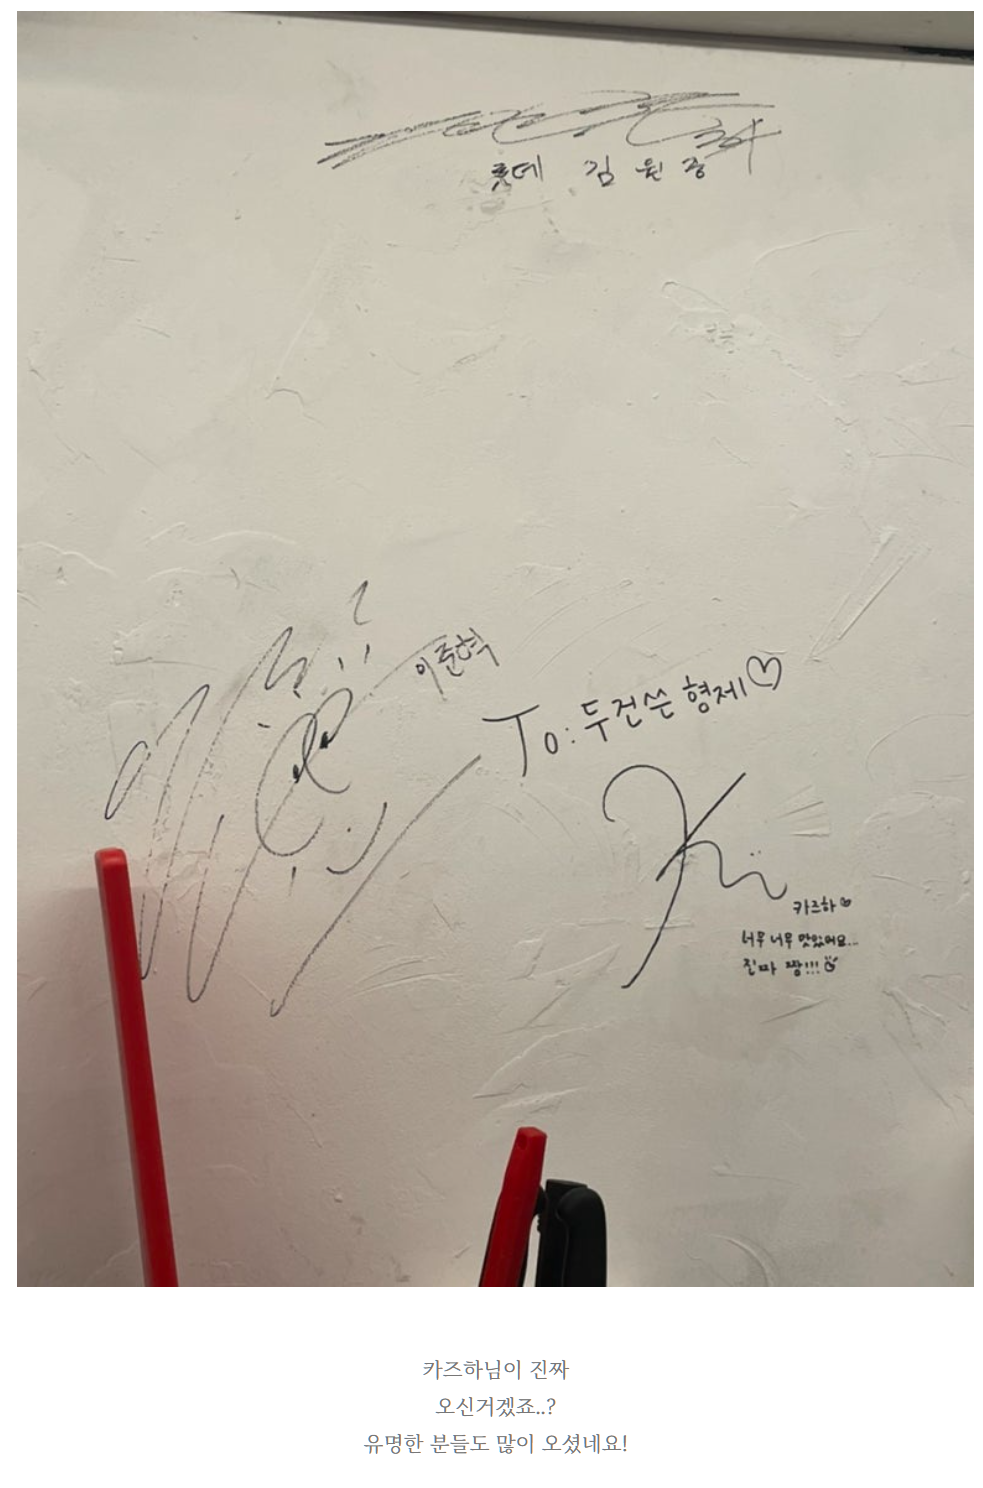 34
롯데 김원중
이준혁
To: 두건쓴 형제♡
카즈하♡
너무 너무 맛있어요...
진짜 짱!!!
카즈하님이 진짜
오신거겠죠..?
유명한 분들도 많이 오셨네요!